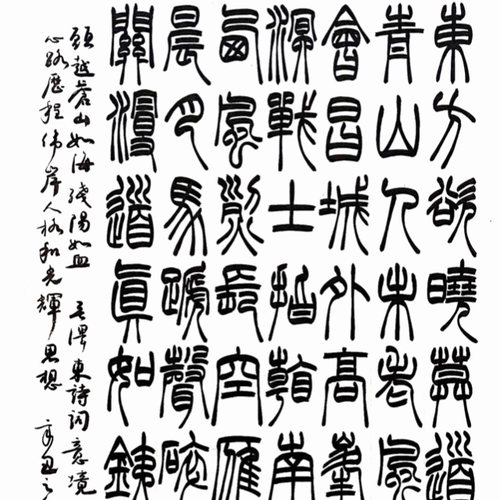 東方欲曉莫道
青山人未老風
會昌城外高峯
溟戰士指看南
西風烈長空雁
晨月馬蹏聲碎
關漫道眞如鐵
頭越蒼山如海殘陽如血 毛澤東詩詞意境
心路歷程偉岸人格和光輝思想